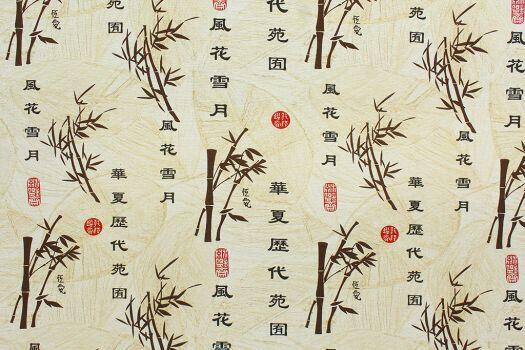 風花雪月
風花雪
風花雪月
苑囿
華夏歷代苑囿
風花雪月
風花雪月
代苑囿
華夏歷代苑囿
風花雪月
風花雪
風花雪月
苑囿
華夏歷代苑囿
風花雪月